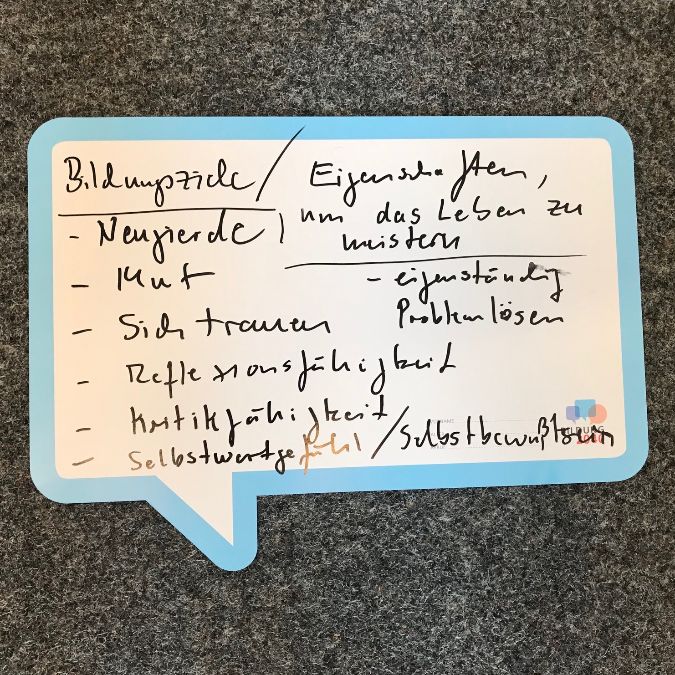 Bildungsziele / Eigenschaften,
um das Leben zu
meistern
- Neugierde
- Mut
- eigenständig
Problemlösen
- Sich trauen
- Reflexionsfähigkeit
- Kritikfähigkeit
- Selbstwertgefühl / Selbstbewußtsein
BILDUNG